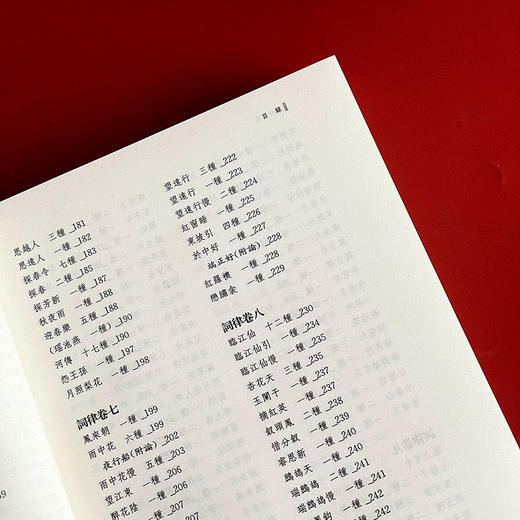 目錄
思越人 三種_181
思遠人 一種_182
探春令 七種_183
探春 二種_185
探芳新 一種_187
秋夜雨 一種_188
迎春樂 五種_188
(瑤池燕 一種)_190
河傳 十七種_190
怨王孫 一種_197
月照梨花 一種_198
詞律卷七
鳳來朝 一種_199
雨中花 六種_199
夜行船(附論)_202
雨中花慢 五種_203
望江東 一種_206
醉花陰 一種_206
望遠行 三種_222
望遠行 一種_223
望遠行慢 二種_224
紅窗睡 一種_225
東坡引 四種_226
於中好 一種_227
端正好(附論)_228
紅羅襖 一種_228
戀繡衾 一種_229
詞律卷八
臨江仙 十二種_230
臨江仙引 一種_234
臨江仙慢 一種_235
杏花天 三種_235
玉闌干 一種_237
摘紅英 一種_238
釵頭鳳 二種_238
惜分釵 一種_239
睿恩新 一種_240
鷓鴣天 一種_240
瑞鷓鴣 二種_241
瑞鷓鴣慢 一種_241
一種_242